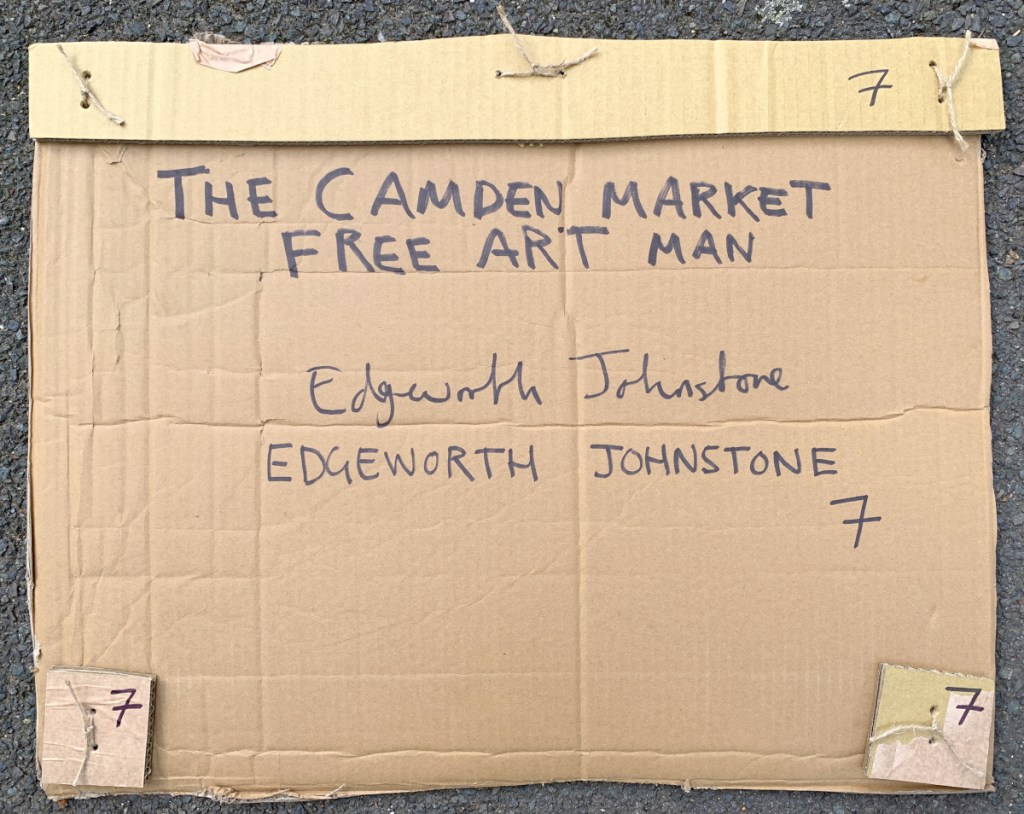 7
THE CAMDEN MARKET
FREE ART MAN
Edgeworth Johnstone
EDGEWORTH JOHNSTONE
7
7
7